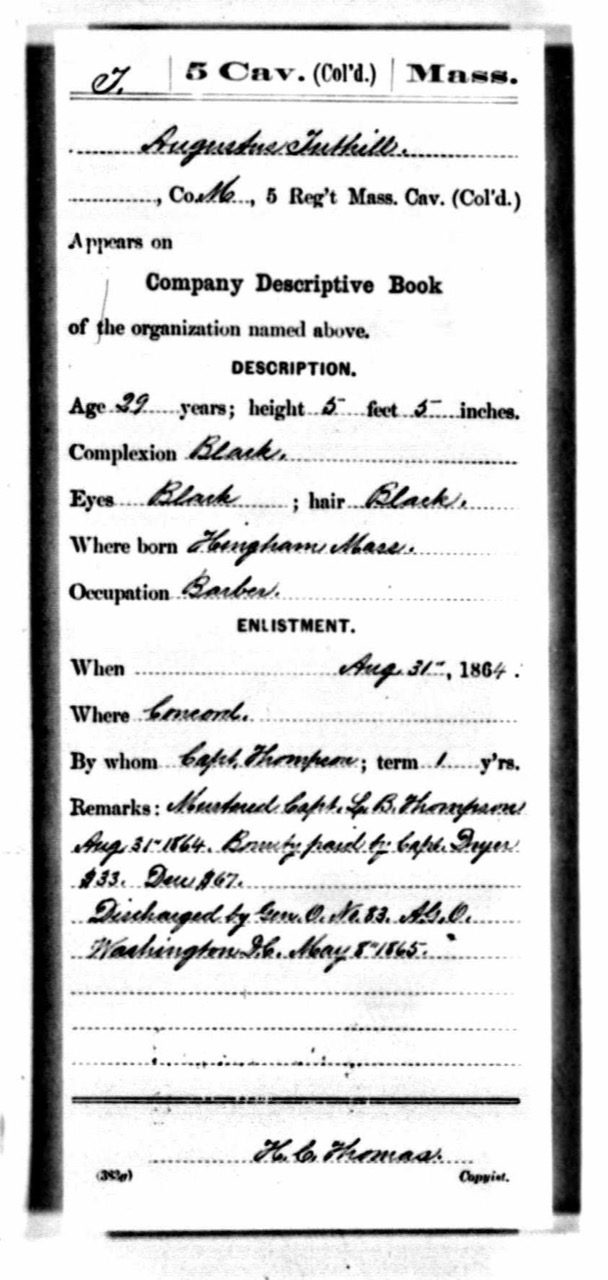 T. | 5 Cav. (Col'd.) | Mass.
Augustus Tuthill.
, Co. M, 5 Reg't Mass. Cav. (Col'd.)
Appears on
Company Descriptive Book
of the organization named above.
DESCRIPTION.
Age 29 years; height 5 feet 5 inches.
Complexion Black.
Eyes Black ; hair Black.
Where born Hingham Mass.
Occupation Barber.
ENLISTMENT.
When Aug. 31st, 1864.
Where Concord.
By whom Capt. Thompson; term 1 y'rs.
Remarks: Mustered Capt. L. B. Thompson
Aug. 31st 1864. Bounty paid by Capt. Dryer
$33. Due $67.
Discharged by Gen. O. No. 83. A.G.O.
Washington D.C. May 8th 1865.
H. C. Thomas.
(383g) Copyist.